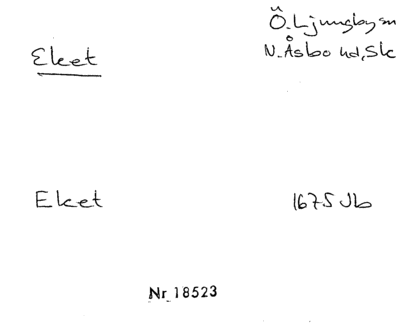 Ö. Ljungby sn
Eket
N. Åsbo hd, Sk
Eket
1675 Jb
Nr 18523